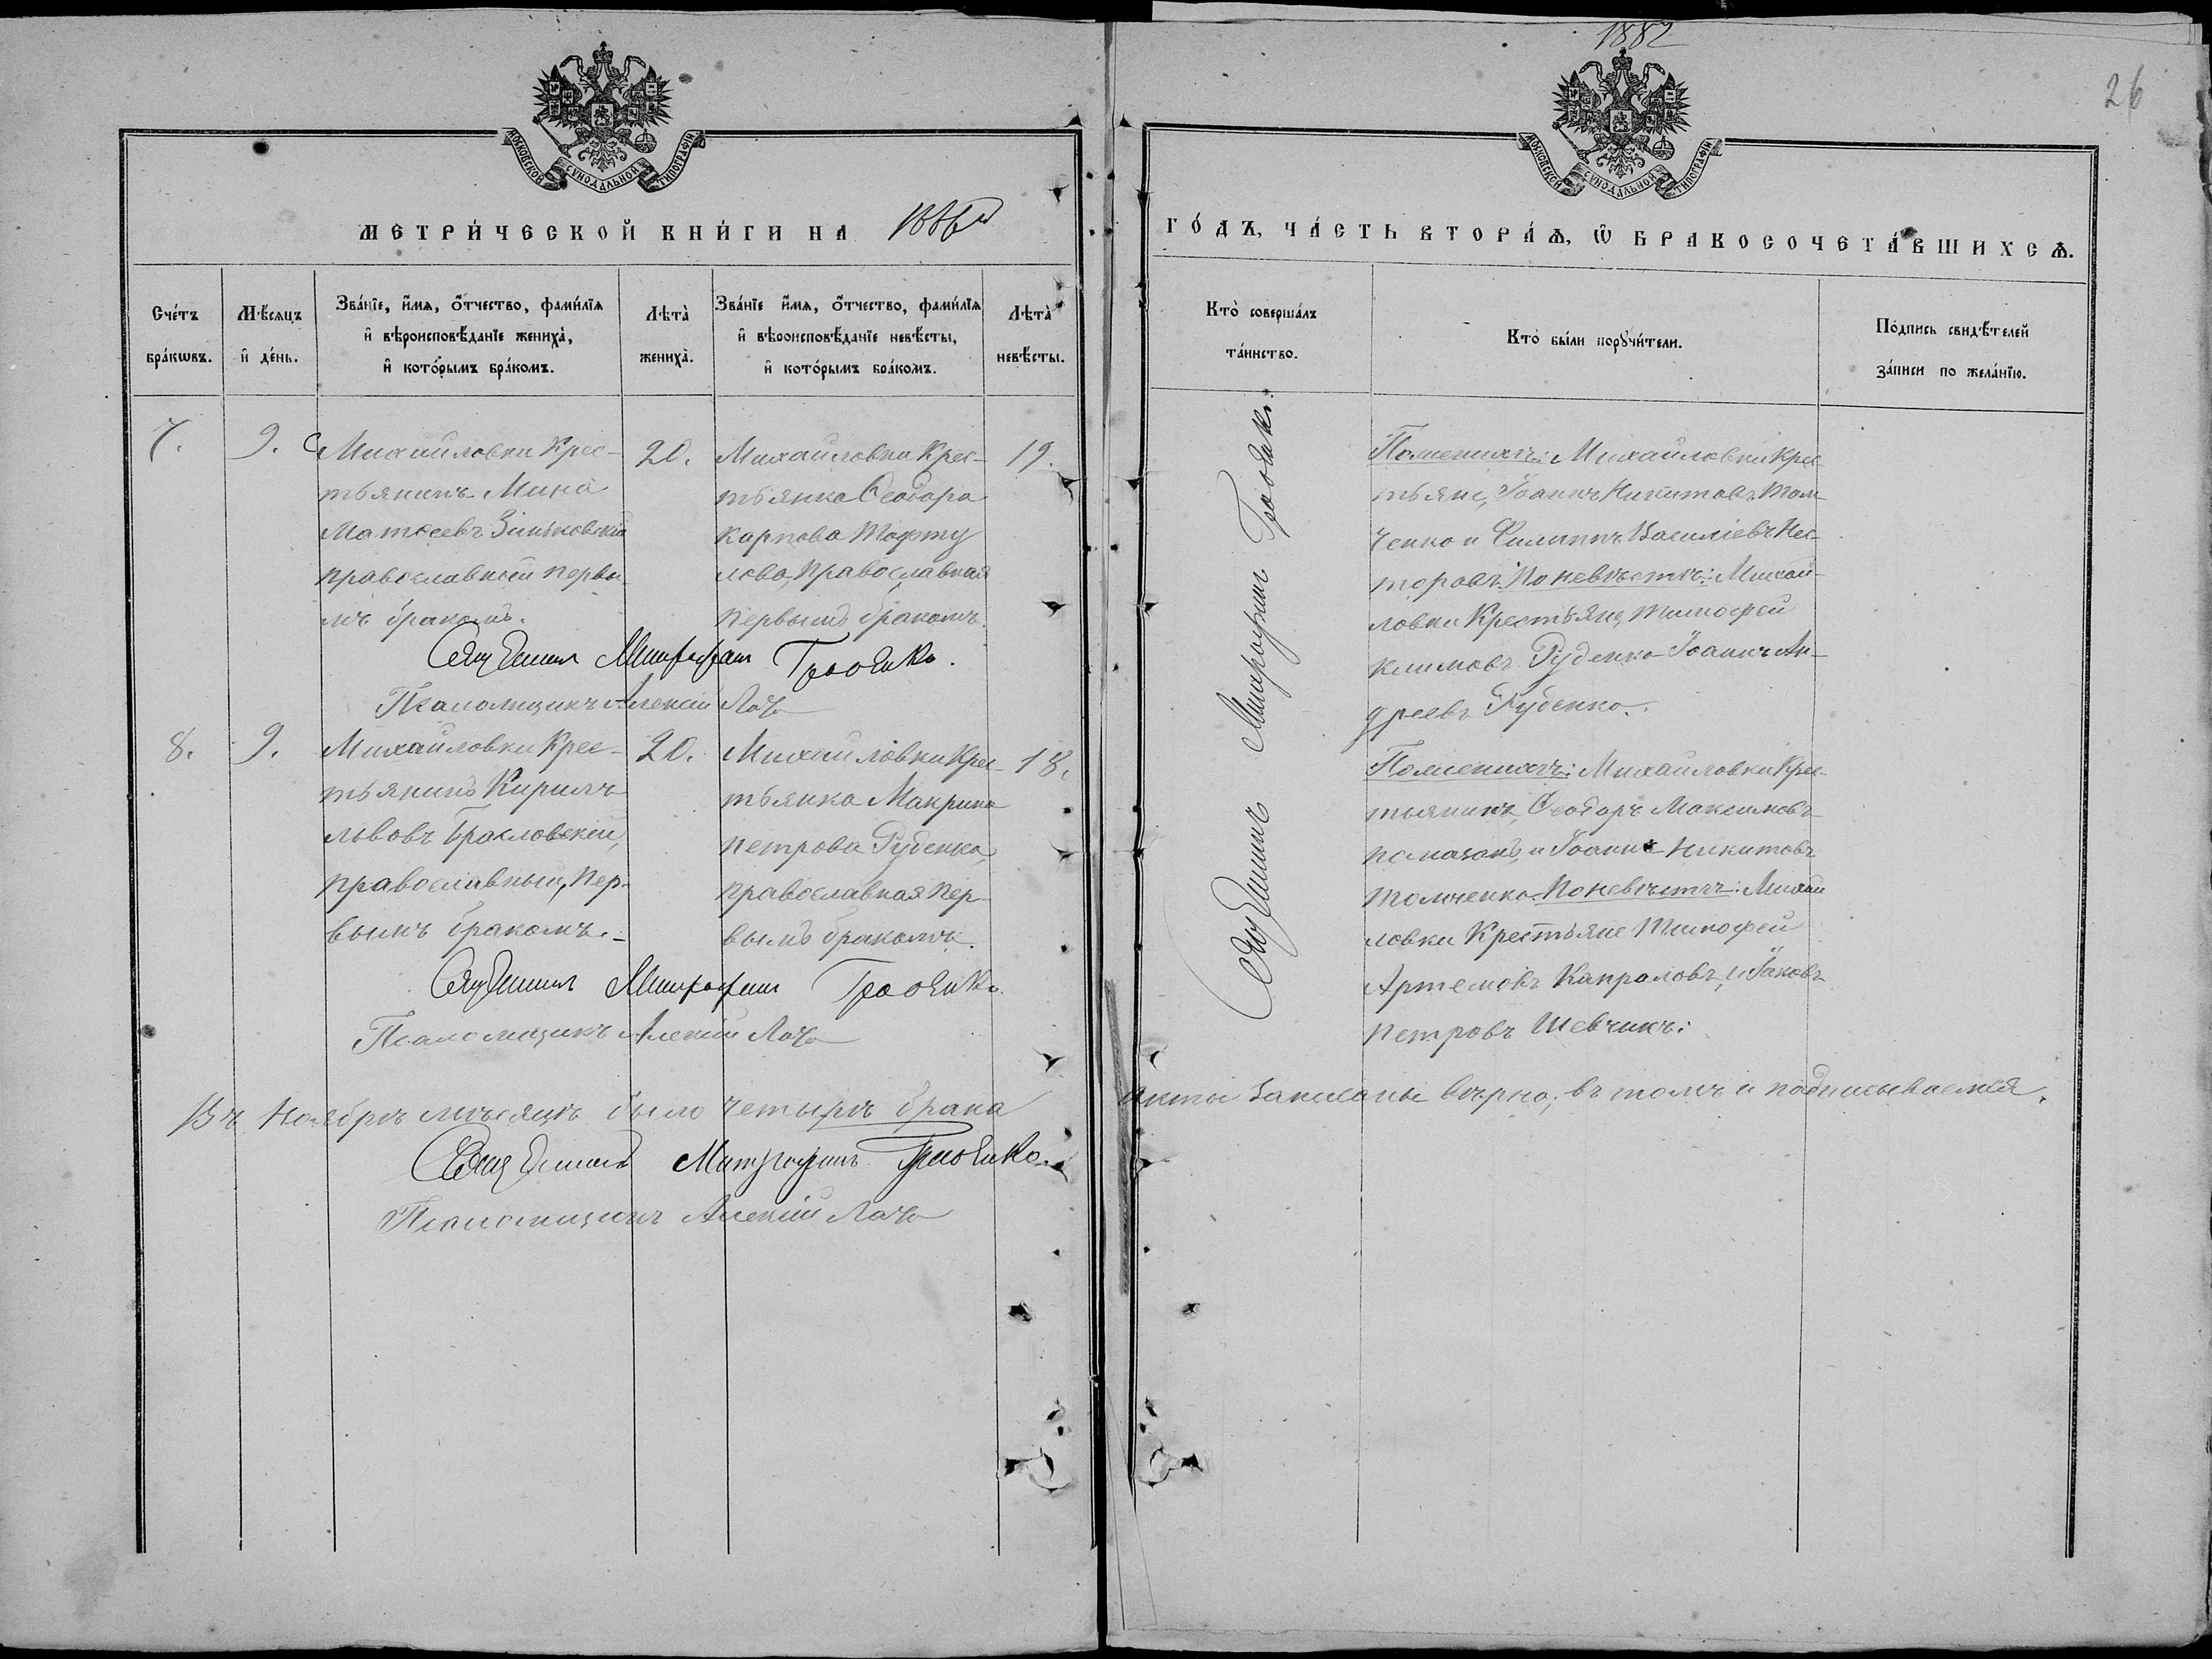 1882
26
МОСКОВСКОЙ СѴНОДАЛЬНОЙ ТИПОГРАФІИ
МОСКОВСКОЙ СѴНОДАЛЬНОЙ ТИПОГРАФІИ
МЕТРИ́ЧЕСКОЙ КНИ́ГИ НА
ГО́ДЪ, ЧА́СТЬ ВТОРА́Ѧ, Ѽ БРАКОСОЧЕТА́ВШИХСѦ.
Сче́тъ
бра́кѡвъ.
Мѣ́сяцъ
и де́нь.
Зва́нїе, и́мя, о́тчество, фами́лїя
и вѣроисповѣ́данїе жениха̀,
и кото́рымъ бра́комъ.
Лѣта̀
жениха̀.
Зва́нїе и́мя, о́тчество, фами́лїя
и вѣроисповѣ́данїе невѣ́сты,
и кото́рымъ бра́комъ.
Лѣта̀
невѣ́сты.
Кто̀ соверша́лъ
та́инство.
Кто̀ бы́ли порꙋчи́тели.
По́дпись свидѣ́телей
за́писи по жела́нїю.
7.
9.
Михайловки Крес-
тьянинъ Мина
Матѳеевъ Зиньковскій
православный первы-
мъ бракомъ.
20.
Михайловки Крес-
тьянка Ѳеодора
Карпова
лова, Православная
первымъ бракомъ.
19.
Священникъ Митрофанъ
Псаломщикъ Алексій
Поженихѣ: Михайловки Крес-
тьяне, Іоаннъ Никитовъ Том-
ченко и Филиппъ Василіевъ Нес-
теровъ. По невѣстѣ: Михай-
ловки Крестьяне, Тимофей
Климовъ Руденко Іоаннъ Ан-
дреевъ Рубенко.
8.
9.
Михайловки Крес-
тьянинъ Кирилъ
Львовъ Брасловскій,
православный, пер-
вымъ бракомъ.
20.
Михайловки Крес-
тьянка Макрина
Петрова Рубенко,
православная пер-
вымъ бракомъ.
18.
Священникъ Митрофанъ
Псаломщикъ Алексій
Поженихѣ: Михайловки Крес-
тьянинъ, Ѳеодоръ Максимовъ
и Іоаннъ Никитовъ
Томченко. По невѣстѣ: Михай
ловки Крестьяне Тимофей
Артемовъ Капраловъ, и Іаковъ
Петровъ Шевчикъ.
Священникъ Митрофанъ
Въ Ноябрѣ мѣсяцѣ было четырѣ брака
акты записаны вѣрно, въ томъ и подписываемся.
Священникъ Митрофанъ
Псаломщикъ Алексій